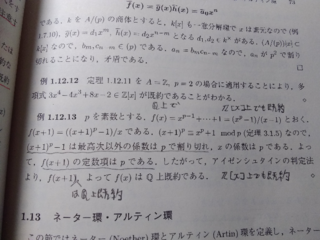 f̄(x) = ḡ(x)h̄(x) = ā₀xⁿ
である。k を A/(p) の商体とすると, k[x] も一意分解環で x は素元なので (例
1.7.10), ḡ(x) = d₁xᵐ, h̄(x) = d₂xⁿ⁻ᵐ となる d₁, d₂ ∈ kˣ がある。(A/(p))[x] ⊂
k[x] なので, bₘ, cₙ₋ₘ ∈ (p) である。aₙ = bₘcₙ₋ₘ なので, aₙ が p² で割り
切れることになり, 矛盾である。 □
例 1.12.12 定理 1.12.11 を A = ℤ, p = 2 の場合に適用することにより, 多
項式 3x⁴ − 4x³ + 8x − 2 ∈ ℤ[x] が既約であることがわかる。
例 1.12.13 p を素数とする。f(x) = xᵖ⁻¹ + ⋯ + 1 = (xᵖ − 1)/(x − 1) とおく。
f(x+1) = ((x+1)ᵖ − 1)/x である。(x+1)ᵖ ≡ xᵖ + 1 mod p (定理 3.1.5) なので,
(x+1)ᵖ − 1 は最高次以外の係数は p で割り切れ, x の係数は p である。よっ
て, f(x+1) の定数項は p である。したがって, アイゼンシュタインの判定法
より, f(x+1), よって f(x) は ℚ 上既約である。
は ℚ 上既約
1.13 ネーター環・アルティン環
この節ではネーター (Noether) 環とアルティン (Artin) 環を定義し, ネーター